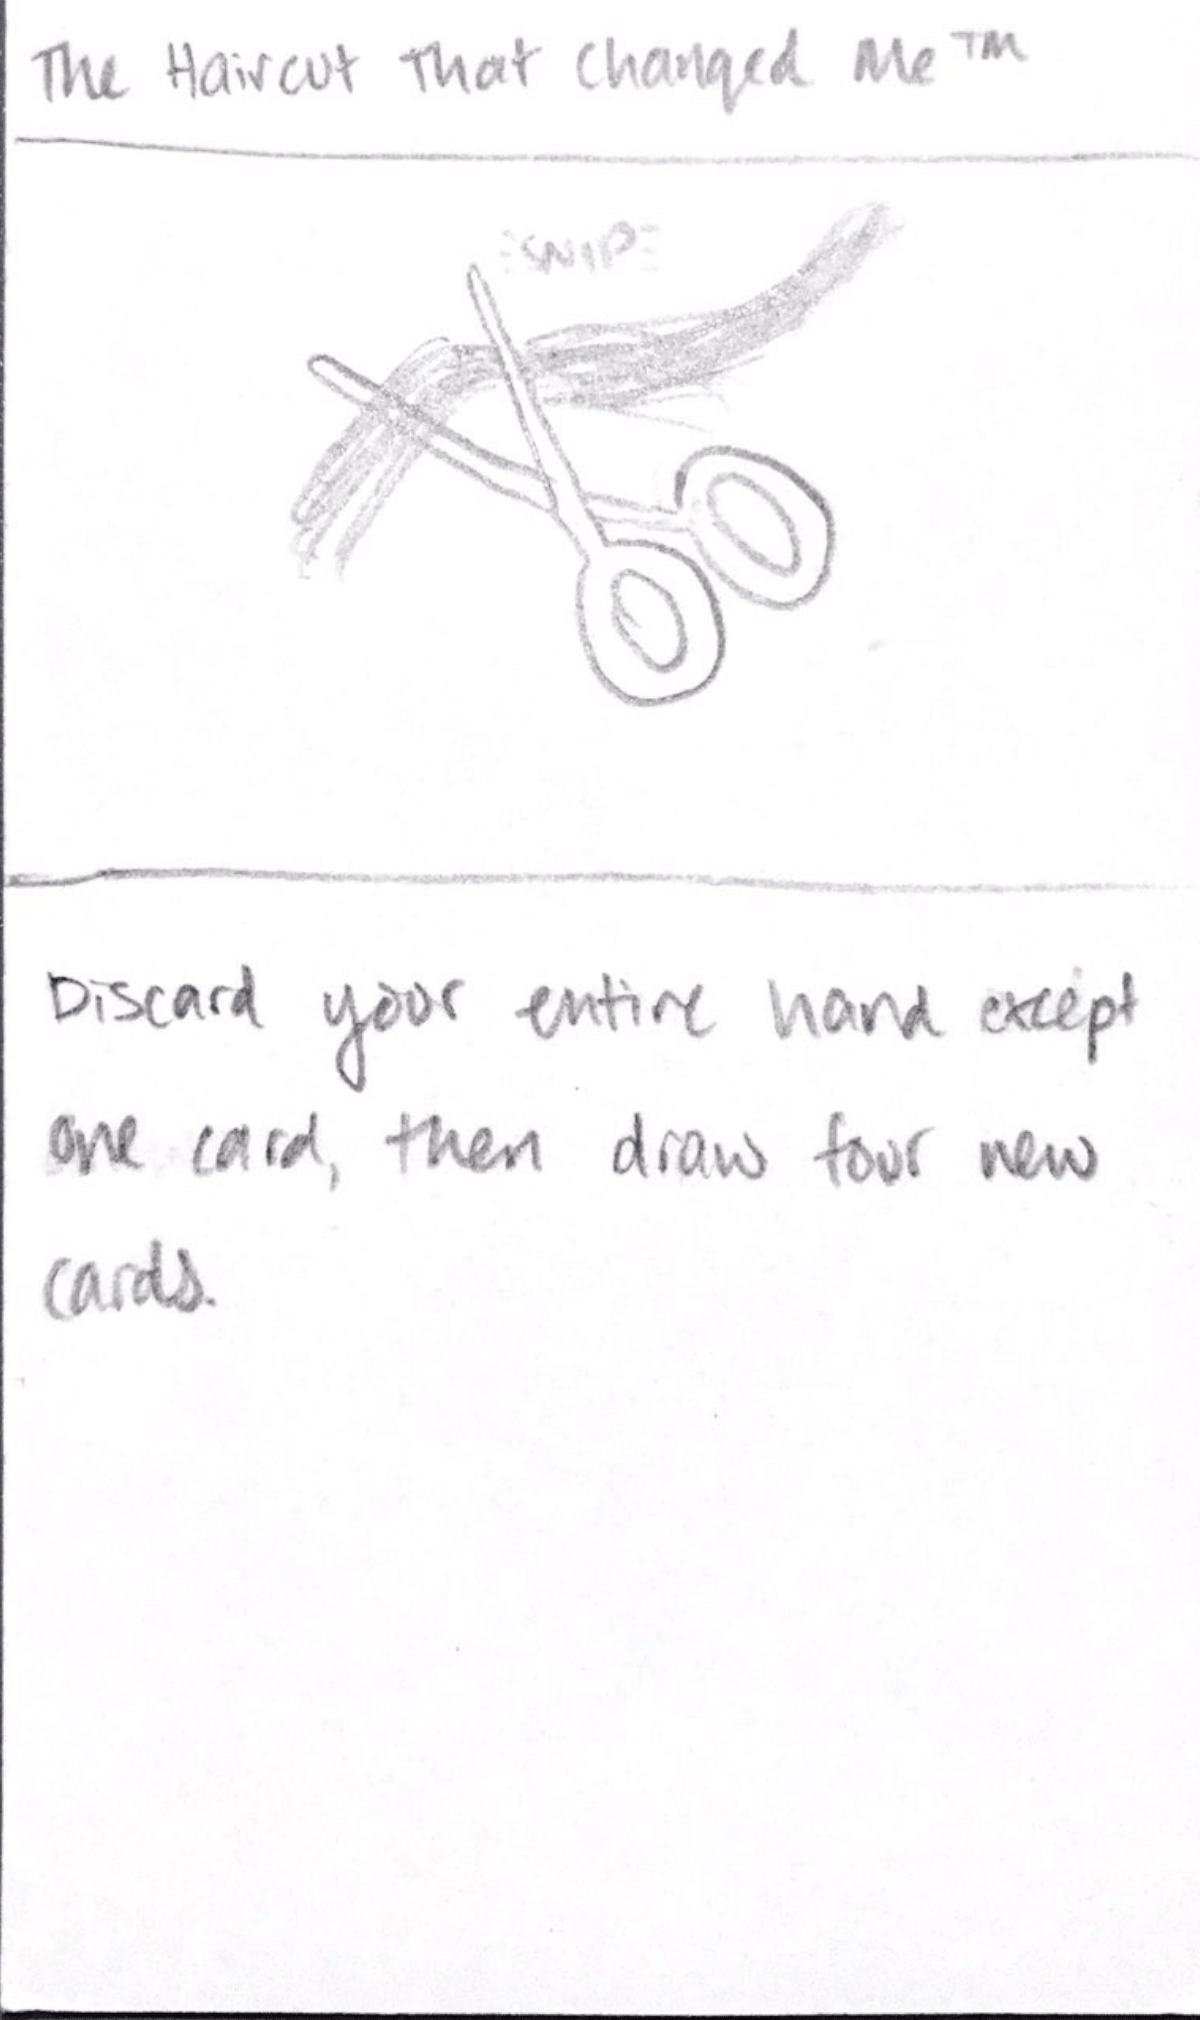 The Haircut That Changed Me™
SNIP
Discard your entire hand except
one card, then draw four new
cards.